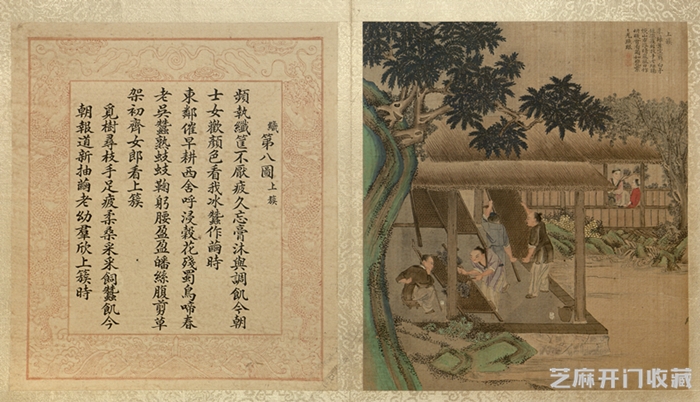 織第八圖 上簇
頻執纖筐不厭疲久忘膏沐與調飢今朝
士女歡顏色看我冰蠶作繭時
東鄰催早耕西舍呼浸穀花殘蜀鳥啼春
老吳蠶熟蚑蚑鞠躬腰盈盈皤絲腹剪草
架初齊女郎看上簇
覓樹尋枝手足疲柔桑采采飼蠶飢今
朝報道新抽繭老幼羣欣上簇時
上簇
芝麻开门收藏